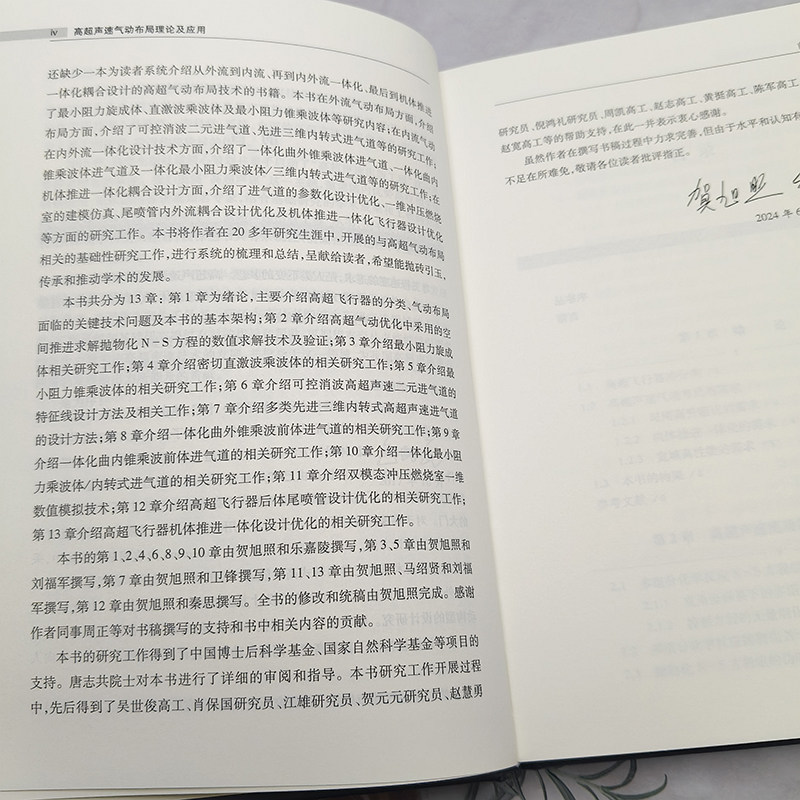 iv 高超声速气动布局理论及应用
还缺少一本为读者系统介绍从外流到内流、再到内外流一体化、最后到机体推进
一体化耦合设计的高超气动布局技术的书籍。本书在外流气动布局方面,介绍
了最小阻力旋成体、直激波乘波体及最小阻力锥乘波体等研究内容;在内流气动
布局方面,介绍了可控消波二元进气道、先进三维内转式进气道等的研究工作;
在内外流一体化设计技术方面,介绍了一体化曲外锥乘波体进气道、一体化曲内
锥乘波体进气道及一体化最小阻力乘波体/三维内转式进气道等的研究工作;在
机体推进一体化耦合设计方面,介绍了进气道的参数化设计优化、一维冲压燃烧
室的建模仿真、尾喷管内外流耦合设计优化及机体推进一体化飞行器设计优化
等方面的研究工作。本书将作者在 20 多年研究生涯中,开展的与高超气动布局
相关的基础性研究工作,进行系统的梳理和总结,呈献给读者,希望能抛砖引玉,
传承和推动学术的发展。
本书共分为 13 章:第 1 章为绪论,主要介绍高超飞行器的分类、气动布局
面临的关键技术问题及本书的基本架构;第 2 章介绍高超气动优化中采用的空
间推进求解抛物化 N-S 方程的数值求解技术及验证;第 3 章介绍最小阻力旋成
体相关研究工作;第 4 章介绍密切直激波乘波体的相关研究工作;第 5 章介绍最
小阻力锥乘波体的相关研究工作;第 6 章介绍可控消波高超声速二元进气道的
特征线设计方法及相关工作;第 7 章介绍多类先进三维内转式高超声速进气道
的设计方法;第 8 章介绍一体化曲外锥乘波前体进气道的相关研究工作;第 9 章
介绍一体化曲内锥乘波前体进气道的相关研究工作;第 10 章介绍一体化最小阻
力乘波体/内转式进气道的相关研究工作;第 11 章介绍双模态冲压燃烧室一维
数值模拟技术;第 12 章介绍高超飞行器后体尾喷管设计优化的相关研究工作;
第 13 章介绍高超飞行器机体推进一体化设计优化的相关研究工作。
本书的第 1、2、4、6、8、9、10 章由贺旭照和乐嘉陵撰写,第 3、5 章由贺旭照和
刘福军撰写,第 7 章由贺旭照和卫锋撰写,第 11、13 章由贺旭照、马绍贤和刘福
军撰写,第 12 章由贺旭照和秦思撰写。全书的修改和统稿由贺旭照完成。感谢
作者同事周正等对书稿撰写的支持和书中相关内容的贡献。
本书的研究工作得到了中国博士后科学基金、国家自然科学基金等项目的
支持。唐志共院士对本书进行了详细的审阅和指导。本书研究工作开展过程
中,先后得到了吴世俊高工、肖保国研究员、江雄研究员、贺元元研究员、赵慧勇
研究员、倪鸿礼研究员、周凯高工、赵志高工、黄挺高工、陈军高工、
赵宽高工等的帮助支持,在此一并表示衷心感谢。
虽然作者在撰写书稿过程中力求完善,但由于水平和认知有
不足在所难免,敬请各位读者批评指正。
贺旭照
2024 年 6